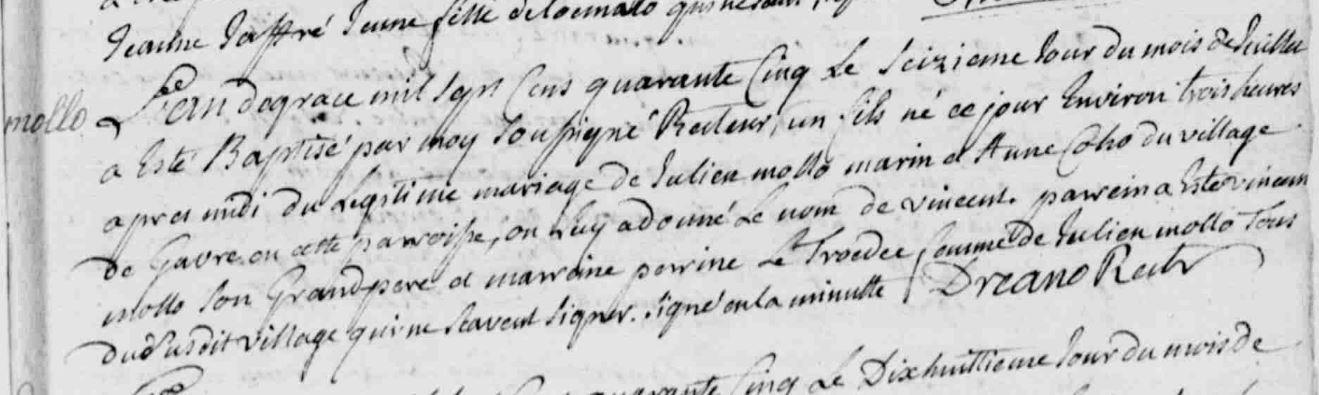 Jeanne Jaffré Jeune fille de locmalo qui ne
mollo L'an de grace mil sept Cens quarante Cinq Le Seizieme Jour du mois de Juillet
a Esté Baptisé par moy Soussigné Recteur, un fils né ce jour Environ trois heures
apres midi du Legitime mariage de Julien mollo marin et Anne Coho du village
de Gavre en cette parroisse, on Luy a donné Le nom de vincent. parrein a Esté vincent
mollo Son Grandpere et marraine perrine Le Troedec femme de Julien mollo Tous
dudusdit village qui ne Scavent Signer. Signé en la minutte / Dreano Rectr
quarante Cinq Le Dixhuittieme Jour du mois de